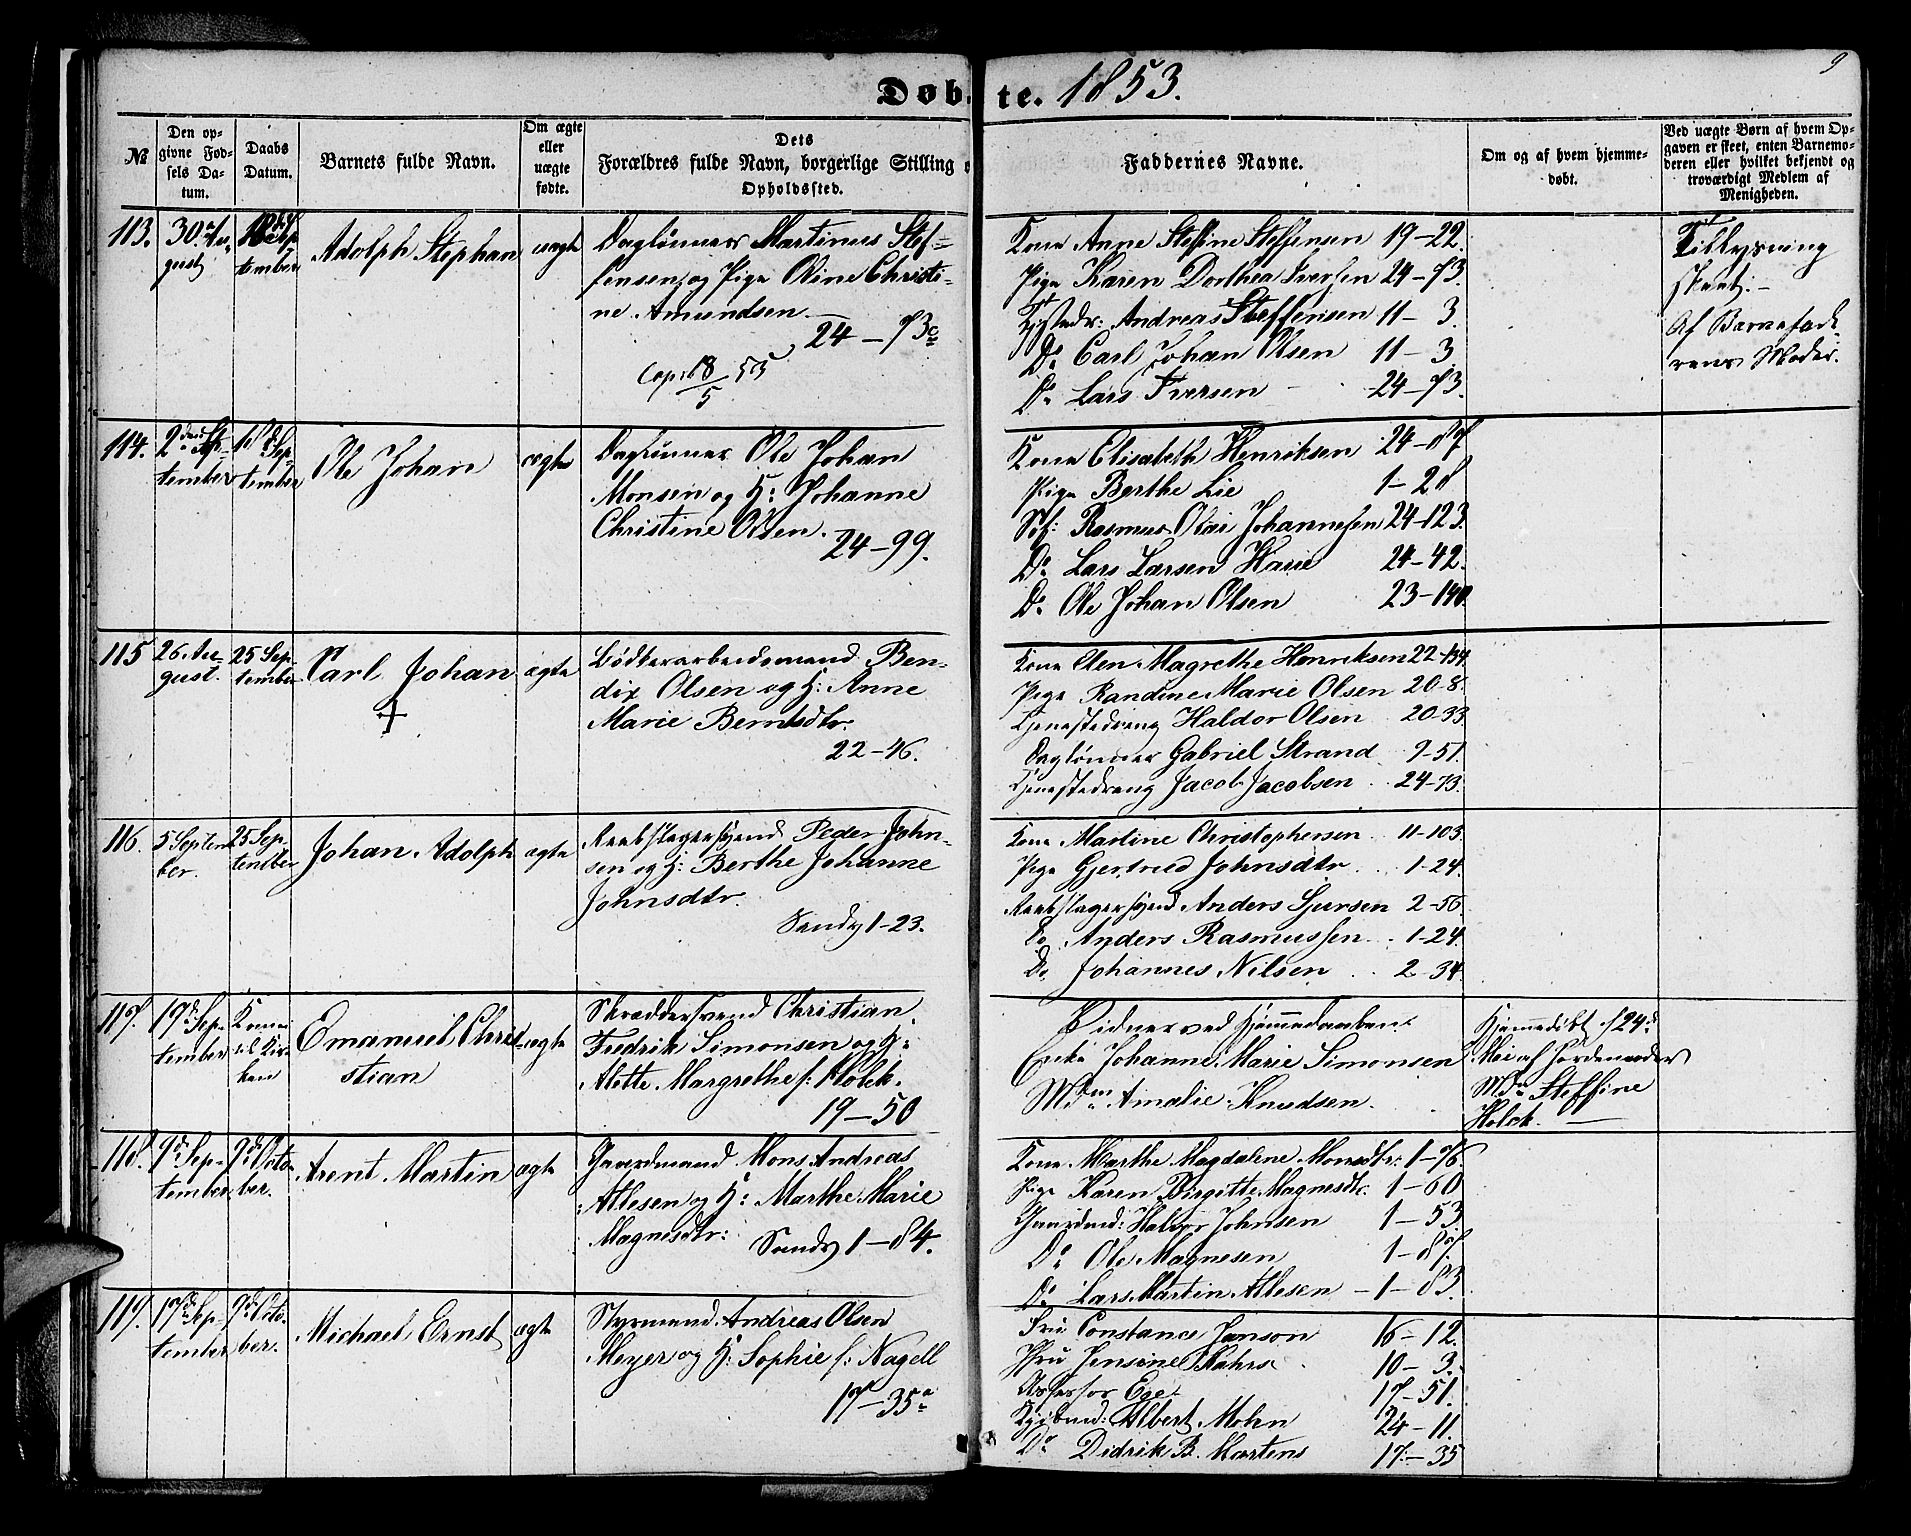 9
Døbte. 1853.
№
Den opgivne Fødsels Datum.
Daabs Datum.
Barnets fulde Navn.
Om ægte eller uægte fødte.
Dets Forældres fulde Navn, borgerlige Stilling o
Opholdssted.
Faddernes Navne.
Om og af hvem hjemmedøbt.
Ved uægte Børn af hvem Opgaven er skeet, enten Barnemoderen eller hvilket bekjendt og troværdigt Medlem af Menigheden.
113. 30. August
September
Adolph Stephan
uægte
Daglønner Martinus Stef-
fensen og Pige Oline Christi-
ne Amundsen
24 – 73c
Cop: 18/5 55
Kone Anne Steffine Steffensen 19-22.
Pige Karen Dorthea Iversen 24-73.
Tjstedr: Andreas Steffensen 11-3.
Do Carl Johan Olsen 11-3
Do Lars Iversen 24-73.
Tillysning
skeet.
Af Barnefade-
rens Moder.
114. 2den September
18 September
Ole Johan
ægte
Daglønner Ole Johan
Monsen og H: Johanne
Christine Olsen.
24-99.
Kone Elisabeth Henriksen 24-87
Pige Berthe Lie 1-28
Rasmus Olai Johannesen 24-123.
Do Lars Larsen Havie 24-42.
Do Ole Johan Olsen 23-140.
115 26 August.
25 September
Carl Johan
+
ægte
Bødkerarbeidsmand Ben-
dix Olsen og H: Anne
Marie Berntsdtr.
22-46.
Kone Elen Magrethe Henriksen 22-134.
Pige Randine Marie Olsen 20-8.
Tjenestedreng Haldor Olsen 20-33
Daglønner Gabriel Strand 9-51.
Tjenestedreng Jacob Jacobsen 24-73.
116. 5 September.
25 September
Johan Adolph
ægte
Reebslagersvend Peder John-
sen og H: Berthe Johanne
Johnsdtr.
Sandv 1-23.
Kone Martine Christophersen 11-103.
Pige Gjertrud Johnsdtr 1-24.
Reebslagersvend Anders Sjursen 2-56.
Do Anders Rasmussen 1-24.
Do Johannes Nilsen 2-34.
117. 19de September
Kom ei til Kirken
Emanuel Christian
ægte
Skræddersvend Christian
Fredrik Simonsen og H:
Alette Margrethe f: Holck.
19-50
Vidner ved Hjemmedaaben:
Enke Johanne Marie Simonsen
Mdm Amalie Knudsen.
Hjemmedøbt 24d
af Jordemoder
Mdm Steffine
Holck.
118. 9de September
9de October.
Arent Martin
ægte
Gaardmand Mons Andreas
Atlesen og H: Marthe Marie
Magnesdtr:
Sandv 1-84.
Kone Marthe Magdalene Monsdtr: 1-76.
Pige Karen Birgitte Magnesdtr 1-60
Gaardmd: Halvor Johnsen 1-53.
Do Ole Magnesen 1-87.
Do Lars Martin Atlesen 1-83.
119. 17de September
9de October.
Michael Ernst
ægte
Styrmand Andreas Olsen
Meyer og H: Sophie f: Nagell
17-35a
Fru Constance Janson 16-12.
Jfru Jensine Kahrs 10-3.
Assessor Ege 17-51.
Kjøbmd: Albert Mohn 24-11.
Do Didrik B. Martens 17-35